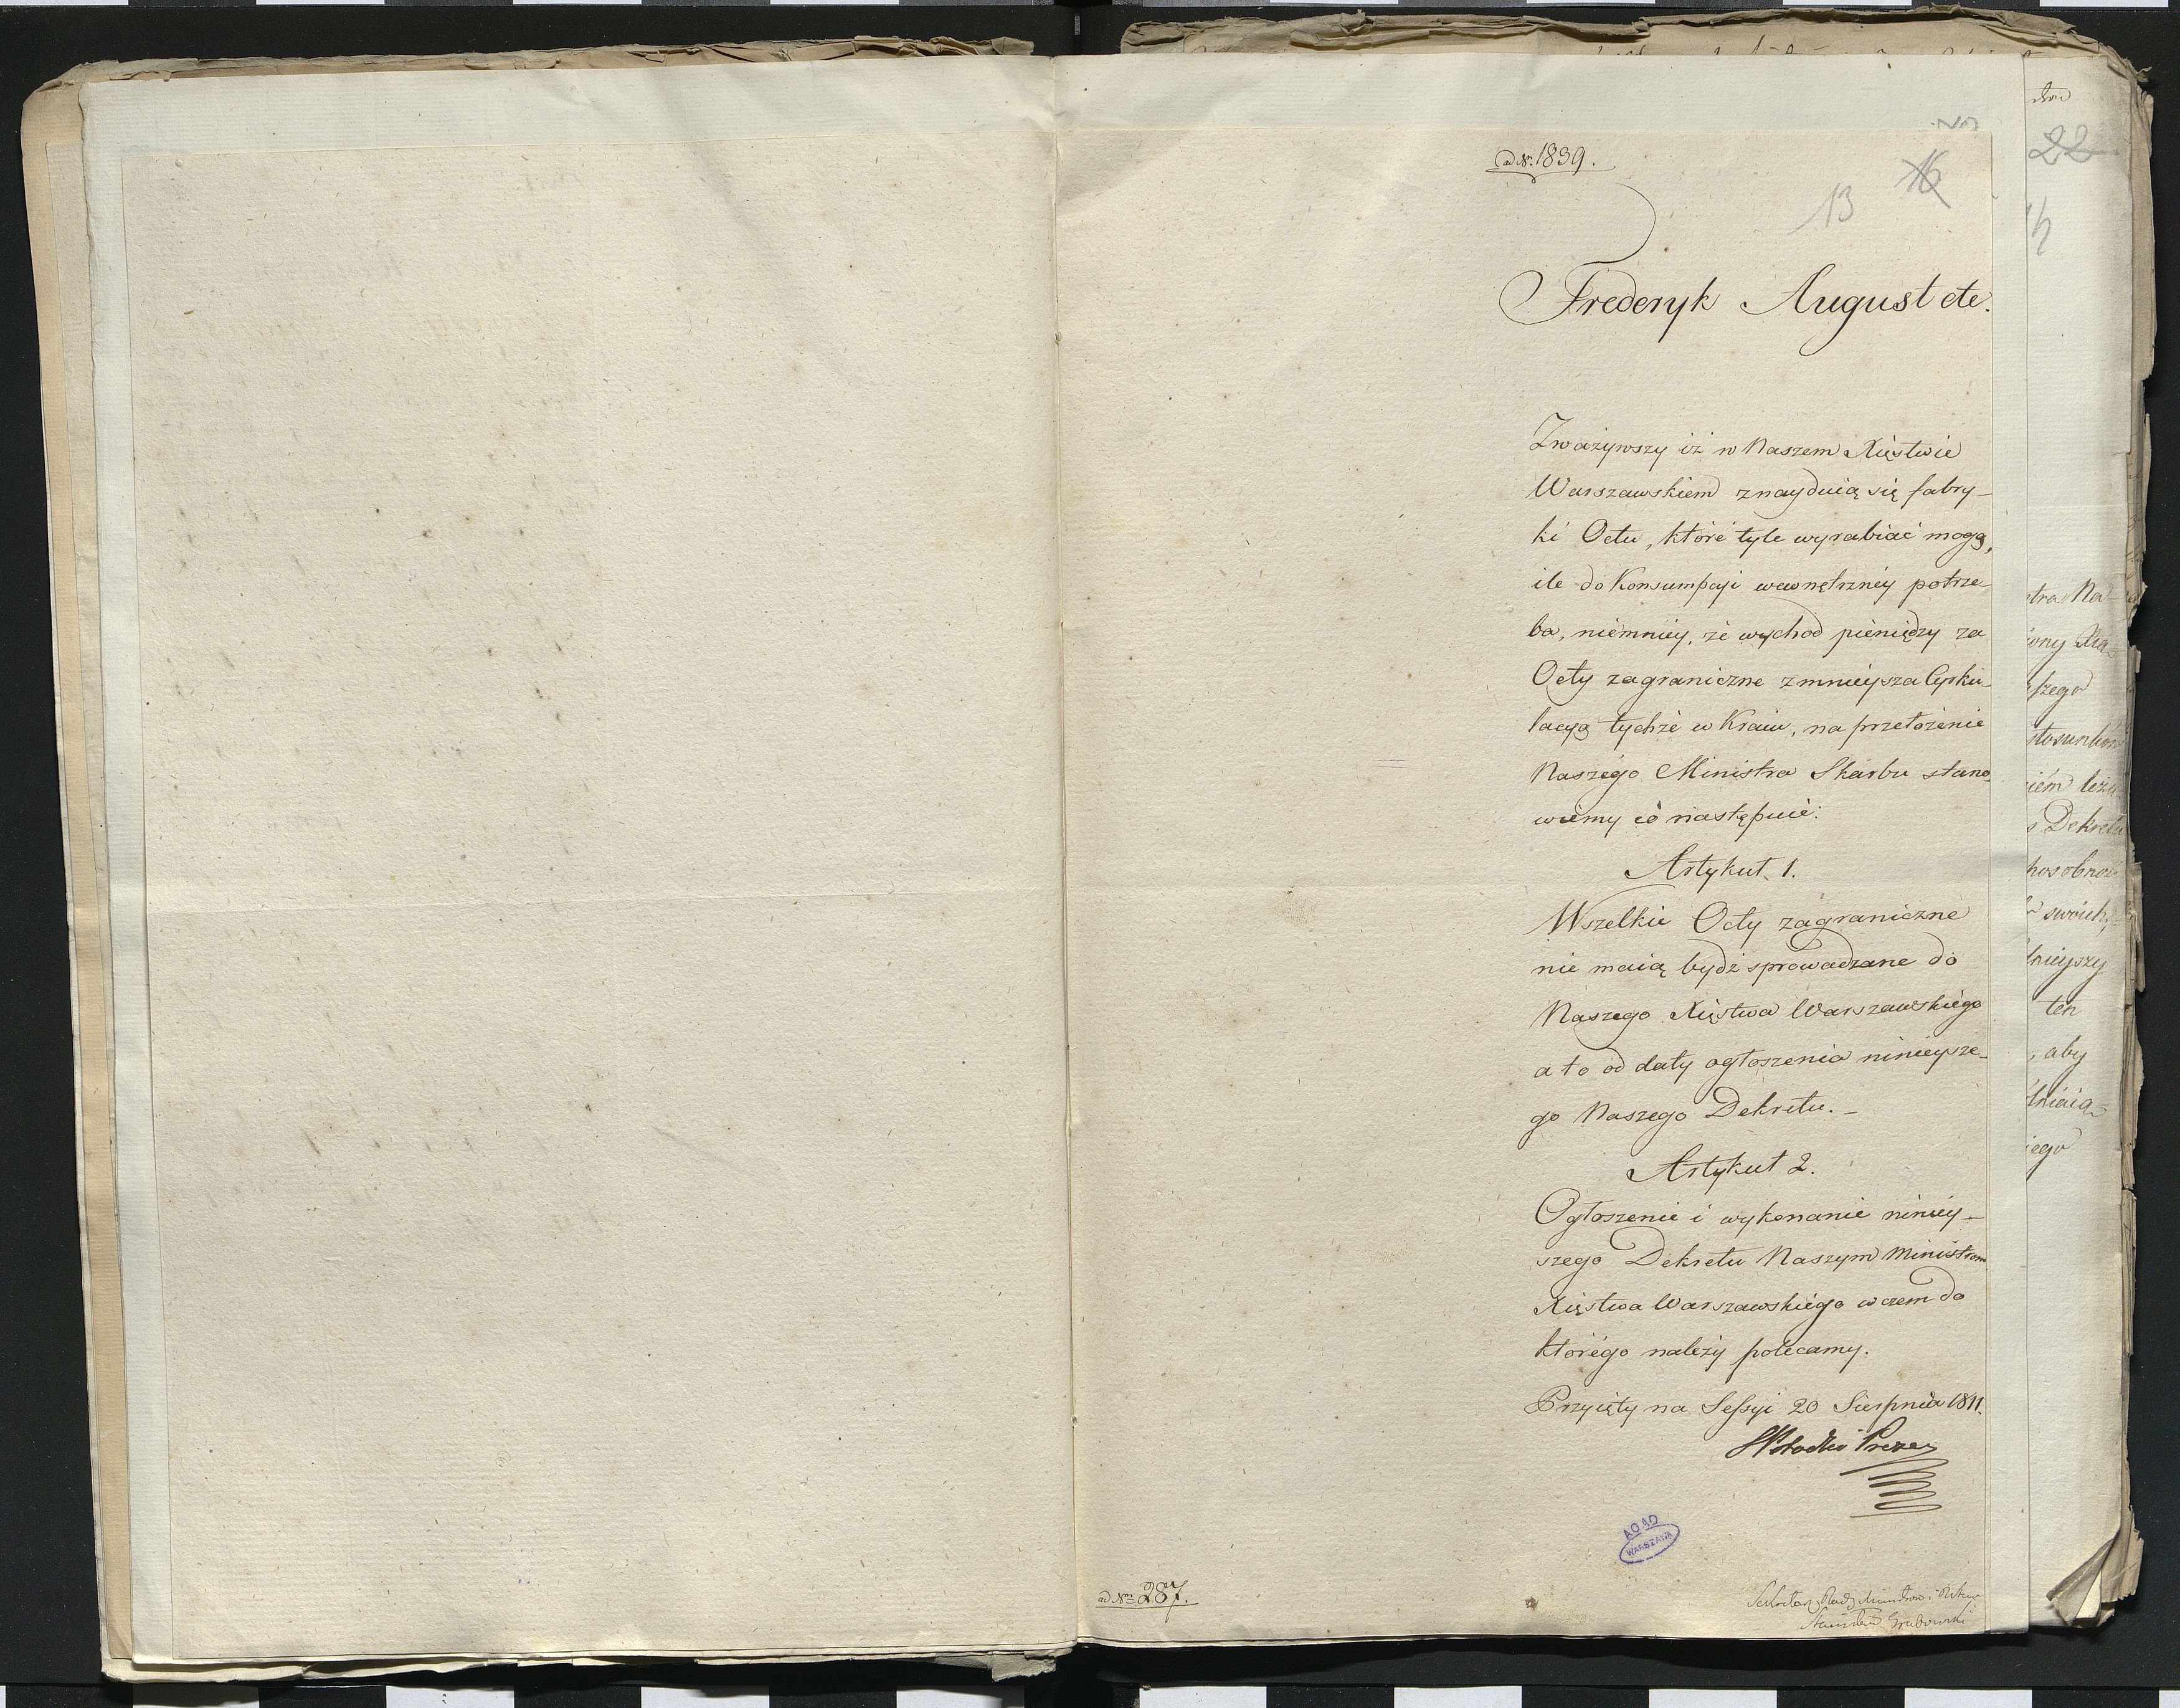 ad Nr. 1839.
16
13
Frederyk August etc.
Zważywszy iż w Naszem Xięstwie
Warszawskiem znayduią się fabry-
ki Octu, które tyle wyrabiać mogą,
ile do Konsumpcyi wewnętrzney potrze-
ba, niemniey, że wychod pieniędzy za
Octy zagraniczne zmnieysza Cyrku-
lacyą tychże w Kraiu, na przełożenie
Naszego Ministra Skarbu stano-
wiemy co następuie:
Artykuł 1.
Wszelkie Octy zagraniczne
nie maią bydź sprowadzane do
Naszego Xięstwa Warszawskiego
a to od daty ogłoszenia ninieysze-
go Naszego Dekretu. -
Artykuł 2.
Ogłoszenie i wykonanie niniey-
szego Dekretu Naszym Ministrom
Xięstwa Warszawskiego w czem do
którego należy polecamy.
Przyięty na Sessyi 20 Sierpnia 1811.
Prezes
AGAD
WARSZAWA
ad Nr 287.
Sekretarz Rady Ministrow i
Stanisław Grabowski
22
tra Na-
szego
stosunkow
Dekretu
swoich,
ten
, aby